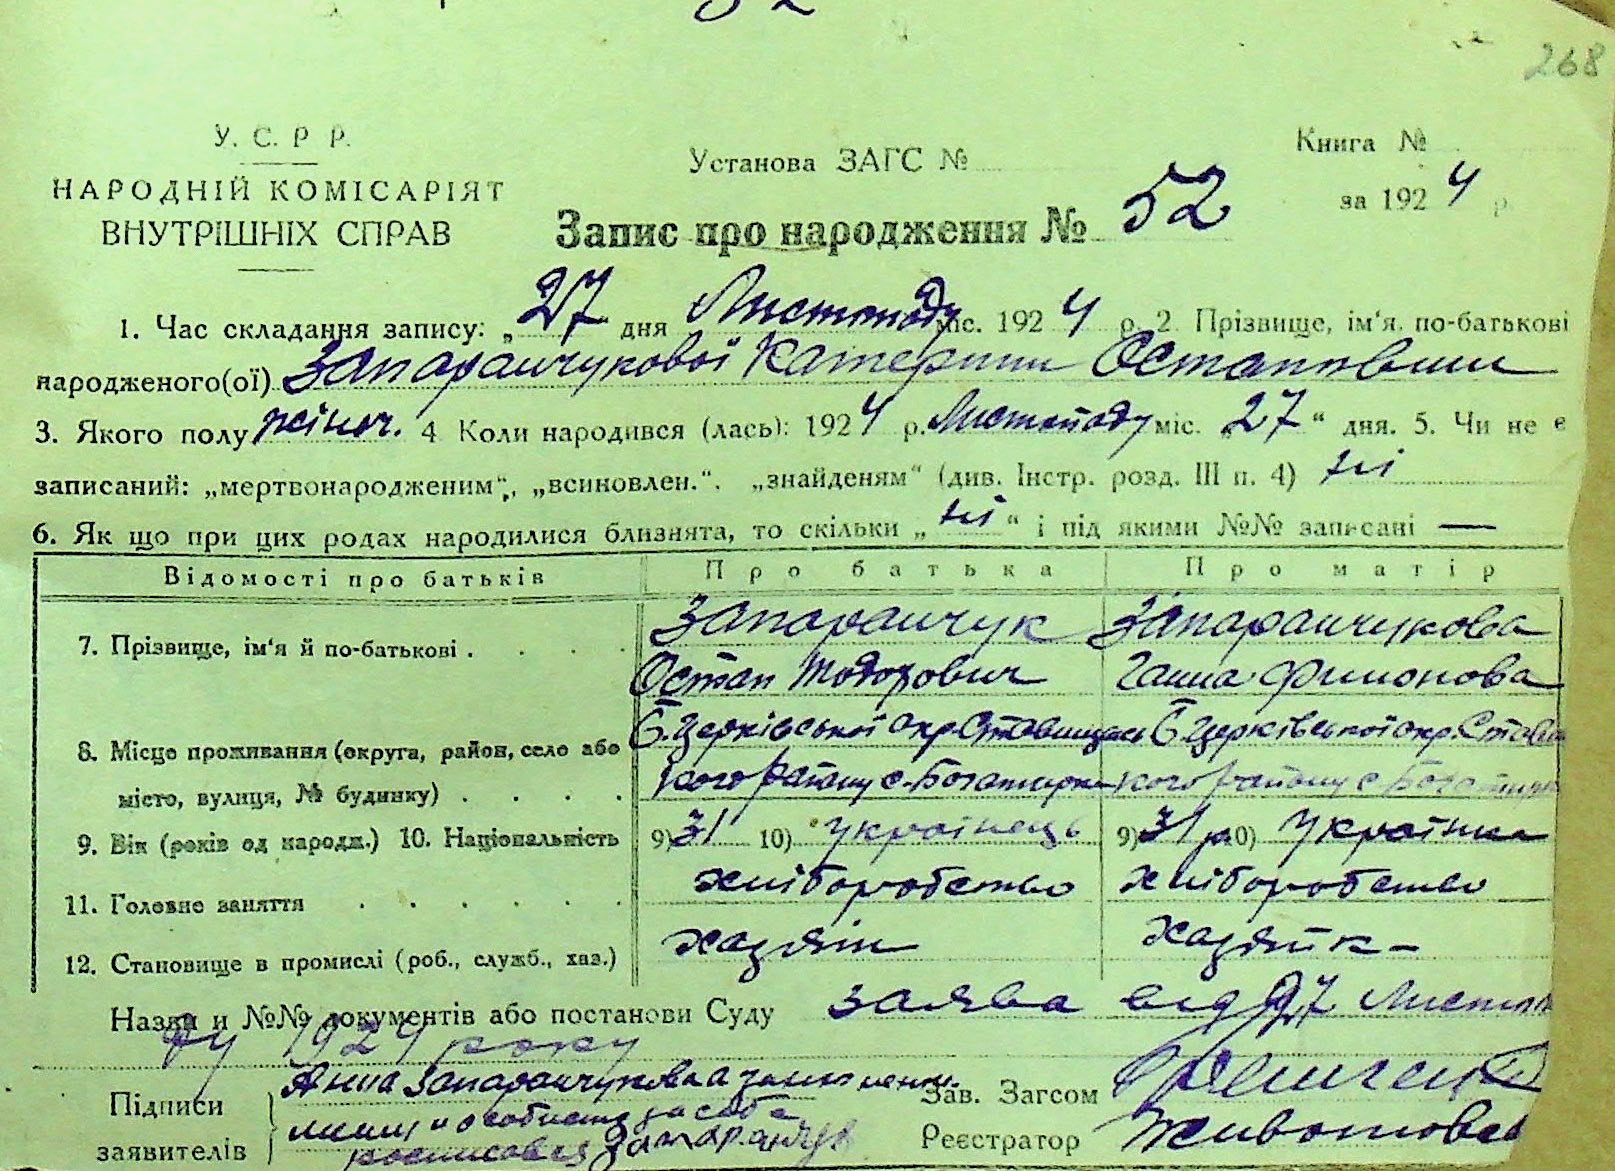 52
268
У. С. Р Р.
НАРОДНІЙ КОМІСАРІЯТ
ВНУТРІШНІХ СПРАВ
Установа ЗАГС №
Книга №
за 1924 р.
Запис про народження № 52
1. Час складання запису: „27 дня Листопаду міс. 1924 р. 2 Прізвище, ім'я, по-батькові
народженого(ої) Запаранчукової Катерини Остаповни
3. Якого полу жіноч. 4 Коли народився (лась): 1924 р. Листопаду міс. „27“ дня. 5. Чи не є
записаний: „мертвонародженим“, „всиновлен.“. „знайденям“ (див. Інстр. розд. III п. 4) ні
6. Як що при цих родах народилися близнята, то скільки „ні“ і під якими №№ записані —
Відомості про батьків Про батька Про матір
7. Прізвище, ім'я й по-батькові . . . . Запаранчук Запаранчукова
Остап Тодорович Ганна Филонова
8. Місце проживання (округа, район, село або Б. Церківської окр. Ставищесь Б. Церківської окр. Стави
місто, вулиця, № будинку) . . . . кого району с. Богатирка кого району с Богатирк
9. Вік (років од народж.) 10. Національність 9) 31 10) Українець 9) 31 р. 10) Українка
11. Головне заняття . . . . . . хліборобство хліборобство
12. Становище в промислі (роб., служб., хаз.) хазяїн хазяйк-
Назви и №№ документів або постанови Суду заява від 27 Листопа
ду 1924 року
Підписи
заявителів
Анна Запаранчукова а
особисто за себе
Запаранчук
Зав. Загсом
Реєстратор